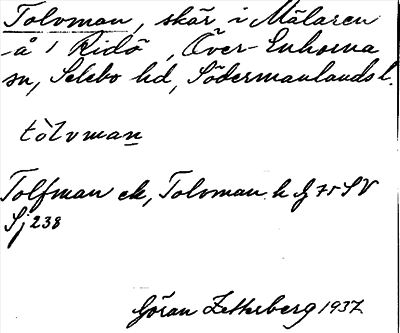 Tolvman, skär i Mälaren
å 1 Ridö, Över-Enhorna
sn, Selebo hd, Södermanlands l.
tòlvman
Tolfman ek, Tolvman h G 75 SV
Sj 238
Göran Zetterberg 1937